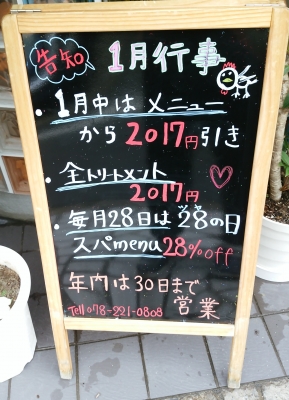 告知
1月行事
・1月中は メニュー
から 2017円引き
・全トリートメント
2017円
・毎月28日は 28の日
スパmenu 28%off
年内は30日まで
営業
Tell 078-221-0808